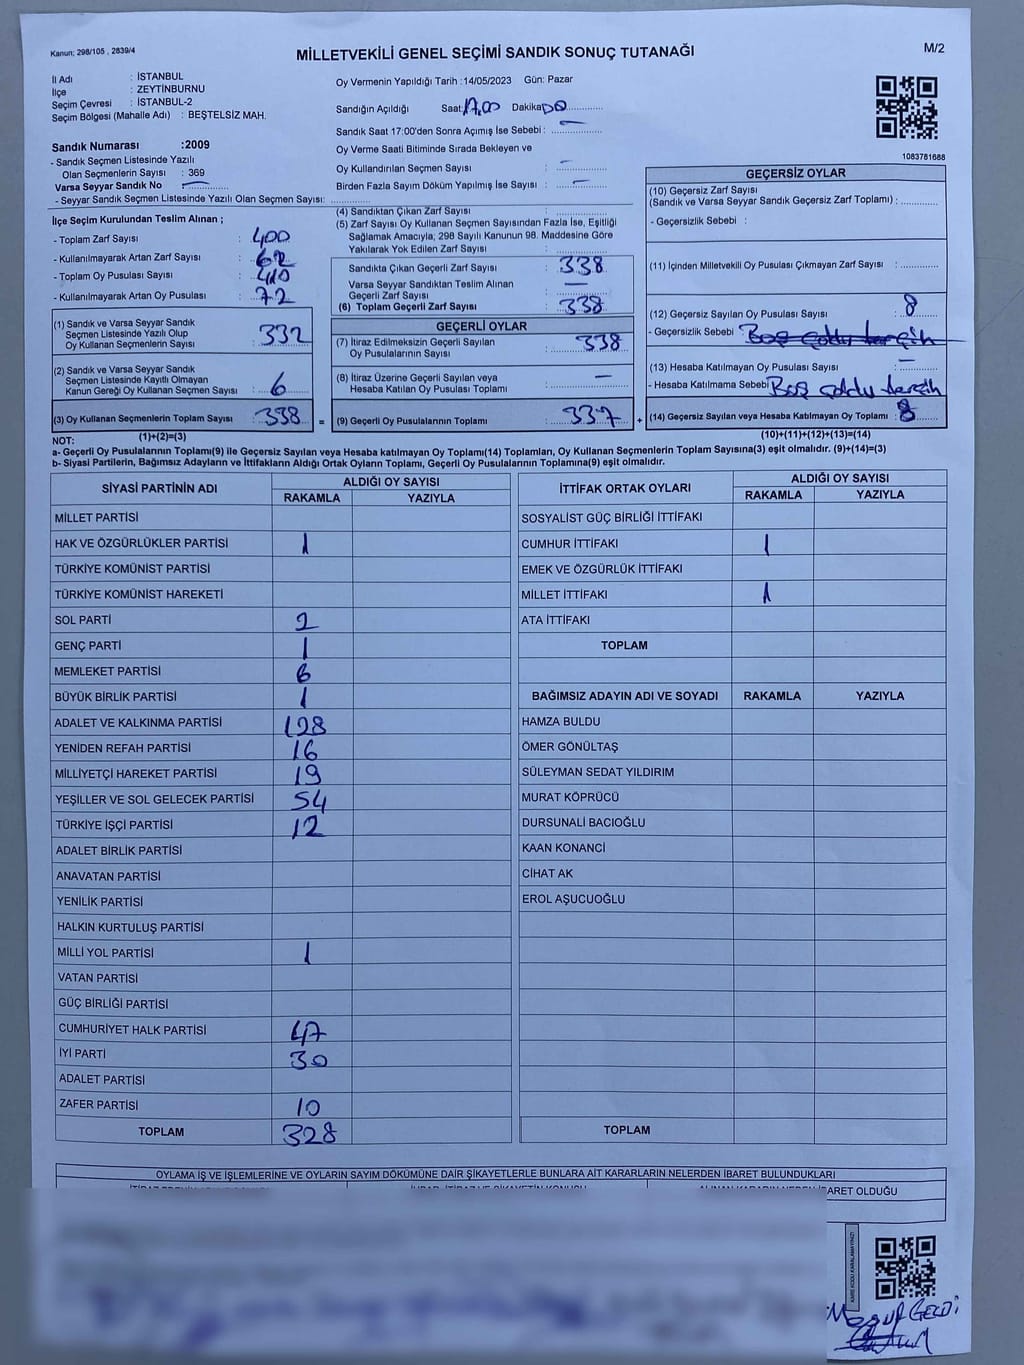 Kanun: 298/105 , 2839/4
MİLLETVEKİLİ GENEL SEÇİMİ SANDIK SONUÇ TUTANAĞI
M/2
İl Adı : İSTANBUL
İlçe : ZEYTİNBURNU
Seçim Çevresi : İSTANBUL-2
Seçim Bölgesi (Mahalle Adı) : BEŞTELSİZ MAH.
Sandık Numarası :2009
- Sandık Seçmen Listesinde Yazılı
Olan Seçmenlerin Sayısı : 369
Varsa Seyyar Sandık No :
- Seyyar Sandık Seçmen Listesinde Yazılı Olan Seçmen Sayısı:
Oy Vermenin Yapıldığı Tarih :14/05/2023 Gün: Pazar
Sandığın Açıldığı Saat: 17,00 Dakika 00
Sandık Saat 17:00'den Sonra Açımış İse Sebebi :
Oy Verme Saati Bitiminde Sırada Bekleyen ve
Oy Kullandırılan Seçmen Sayısı : -
Birden Fazla Sayım Döküm Yapılmış İse Sayısı : -
1083781688
İlçe Seçim Kurulundan Teslim Alınan ;
- Toplam Zarf Sayısı : 400
- Kullanılmayarak Artan Zarf Sayısı : 62
- Toplam Oy Pusulası Sayısı : 410
- Kullanılmayarak Artan Oy Pusulası : 72
(1) Sandık ve Varsa Seyyar Sandık
Seçmen Listesinde Yazılı Olup
Oy Kullanan Seçmenlerin Sayısı : 332
(2) Sandık ve Varsa Seyyar Sandık
Seçmen Listesinde Kayıtlı Olmayan
Kanun Gereği Oy Kullanan Seçmen Sayısı : 6
(3) Oy Kullanan Seçmenlerin Toplam Sayısı : 338
(1)+(2)=(3)
(4) Sandıktan Çıkan Zarf Sayısı :
(5) Zarf Sayısı Oy Kullanan Seçmen Sayısından Fazla İse, Eşitliği
Sağlamak Amacıyla; 298 Sayılı Kanunun 98. Maddesine Göre
Yakılarak Yok Edilen Zarf Sayısı :
Sandıkta Çıkan Geçerli Zarf Sayısı : 338
Varsa Seyyar Sandıktan Teslim Alınan
Geçerli Zarf Sayısı : -
(6) Toplam Geçerli Zarf Sayısı : 338
GEÇERLİ OYLAR
(7) İtiraz Edilmeksizin Geçerli Sayılan
Oy Pusulalarının Sayısı : 338
(8) İtiraz Üzerine Geçerli Sayılan veya
Hesaba Katılan Oy Pusulası Toplamı : -
= (9) Geçerli Oy Pusulalarının Toplamı : 337
GEÇERSİZ OYLAR
(10) Geçersiz Zarf Sayısı
(Sandık ve Varsa Seyyar Sandık Geçersiz Zarf Toplamı) :
- Geçersizlik Sebebi :
(11) İçinden Milletvekili Oy Pusulası Çıkmayan Zarf Sayısı :
(12) Geçersiz Sayılan Oy Pusulası Sayısı : 8
- Geçersizlik Sebebi
(13) Hesaba Katılmayan Oy Pusulası Sayısı : -
- Hesaba Katılmama Sebebi Boş
+ (14) Geçersiz Sayılan veya Hesaba Katılmayan Oy Toplamı : 8
(10)+(11)+(12)+(13)=(14)
NOT:
a- Geçerli Oy Pusulasının Toplamı(9) ile Geçersiz Sayılan veya Hesaba katılmayan Oy Toplamı(14) Toplamları, Oy Kullanan Seçmenlerin Toplam Sayısına(3) eşit olmalıdır. (9)+(14)=(3)
b- Siyasi Partilerin, Bağımsız Adayların ve İttifakların Aldığı Ortak Oyların Toplamı, Geçerli Oy Pusulalarının Toplamına(9) eşit olmalıdır.
SİYASİ PARTİNİN ADI
ALDIĞI OY SAYISI
RAKAMLA YAZIYLA
MİLLET PARTİSİ
HAK VE ÖZGÜRLÜKLER PARTİSİ 1
TÜRKİYE KOMÜNİST PARTİSİ
TÜRKİYE KOMÜNİST HAREKETİ
SOL PARTİ 2
GENÇ PARTİ 1
MEMLEKET PARTİSİ 6
BÜYÜK BİRLİK PARTİSİ 1
ADALET VE KALKINMA PARTİSİ 128
YENİDEN REFAH PARTİSİ 16
MİLLİYETÇİ HAREKET PARTİSİ 19
YEŞİLLER VE SOL GELECEK PARTİSİ 54
TÜRKİYE İŞÇİ PARTİSİ 12
ADALET BİRLİK PARTİSİ
ANAVATAN PARTİSİ
YENİLİK PARTİSİ
HALKIN KURTULUŞ PARTİSİ
MİLLİ YOL PARTİSİ 1
VATAN PARTİSİ
GÜÇ BİRLİĞİ PARTİSİ
CUMHURİYET HALK PARTİSİ 47
İYİ PARTİ 30
ADALET PARTİSİ
ZAFER PARTİSİ 10
TOPLAM 328
İTTİFAK ORTAK OYLARI
ALDIĞI OY SAYISI
RAKAMLA YAZIYLA
SOSYALİST GÜÇ BİRLİĞİ İTTİFAKI
CUMHUR İTTİFAKI 1
EMEK VE ÖZGÜRLÜK İTTİFAKI
MİLLET İTTİFAKI 1
ATA İTTİFAKI
TOPLAM
BAĞIMSIZ ADAYIN ADI VE SOYADI RAKAMLA YAZIYLA
HAMZA BULDU
ÖMER GÖNÜLTAŞ
SÜLEYMAN SEDAT YILDIRIM
MURAT KÖPRÜCÜ
DURSUNALİ BACIOĞLU
KAAN KONANCİ
CİHAT AK
EROL AŞUCUOĞLU
TOPLAM
OYLAMA İŞ VE İŞLEMLERİNE VE OYLARIN SAYIM DÖKÜMÜNE DAİR ŞİKAYETLERLE BUNLARA AİT KARARLARIN NELERDEN İBARET BULUNDUKLARI
ALINAN KARARIN NEDEN İBARET OLDUĞU
KARE KODU KARALAMAYINIZ!